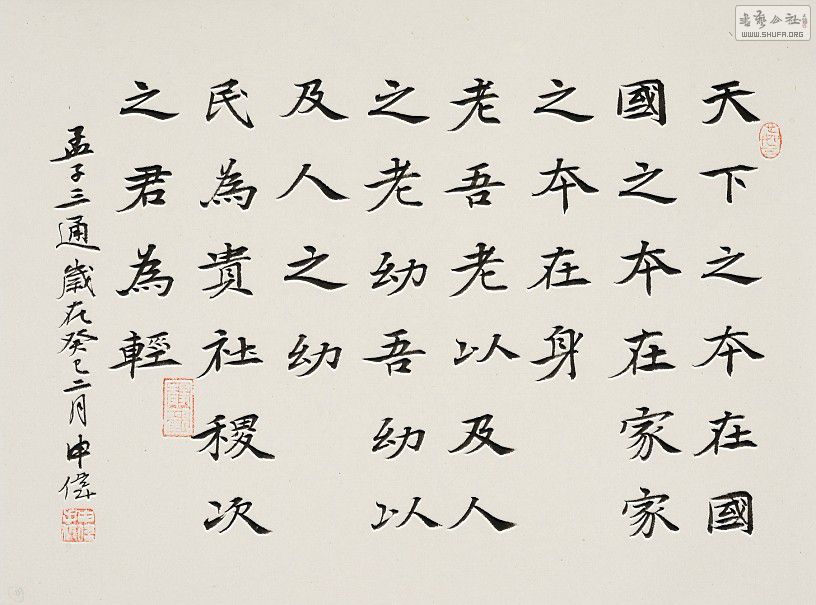 天下之本在國
國之本在家家
之本在身
老吾老以及人
之老幼吾幼以
及人之幼
民為貴社稷次
之君為輕
孟子三通歲在癸巳二月申偉
書藝公社
WWW.SHUFA.ORG